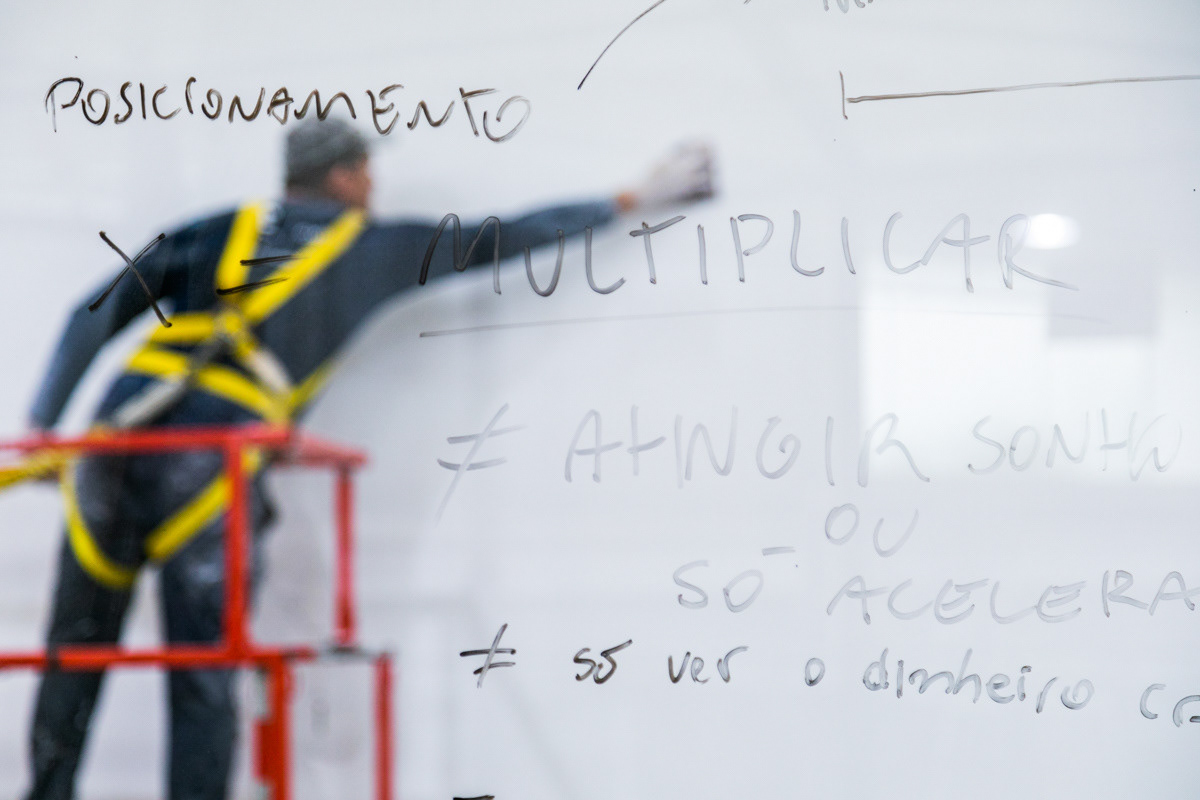 POSICIONAMENTO
X = MULTIPLICAR
≠ ATINGIR SONHO
OU
SÓ ACELERA
≠ só ver o dinheiro